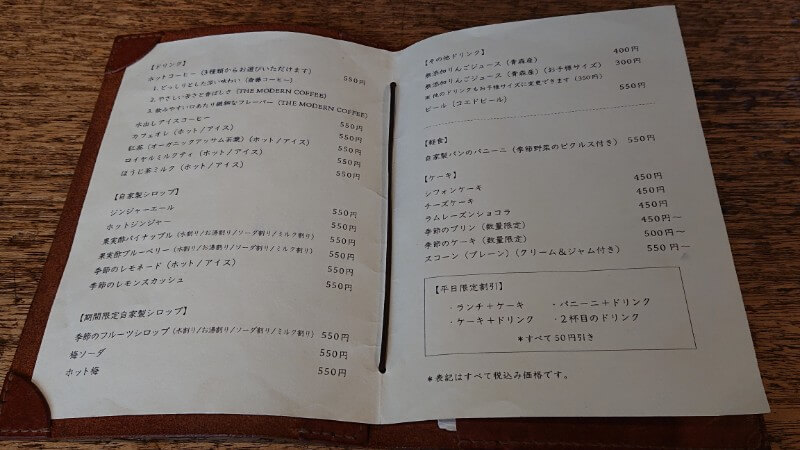 【ドリンク】
ホットコーヒー（3種類からお選びいただけます） 550円
1. どっしりとした深い味わい（斎藤コーヒー）
2. やさしい苦さと香ばしさ（THE MODERN COFFEE）
3. 飲みやすい口あたり繊細なフレーバー（THE MODERN COFFEE）
水出しアイスコーヒー 550円
カフェオレ（ホット/アイス） 550円
紅茶（オーガニックアッサム茶葉）（ホット/アイス） 550円
ロイヤルミルクティ（ホット/アイス） 550円
ほうじ茶ミルク（ホット/アイス） 550円
【自家製シロップ】
ジンジャーエール 550円
ホットジンジャー 550円
果実酢パイナップル（水割り/お湯割り/ソーダ割り/ミルク割り） 550円
果実酢ブルーベリー（水割り/お湯割り/ソーダ割り/ミルク割り） 550円
季節のレモネード（ホット/アイス） 550円
季節のレモンスカッシュ 550円
【期間限定自家製シロップ】
季節のフルーツシロップ（水割り/お湯割り/ソーダ割り/ミルク割り） 550円
梅ソーダ 550円
ホット梅 550円
【その他ドリンク】
無添加りんごジュース（青森産） 400円
無添加りんごジュース（青森産）（お子様サイズ） 300円
＊他のドリンクもお子様サイズに変更できます（350円）
ビール（コエドビール） 550円
【軽食】
自家製パンのパニーニ（季節野菜のピクルス付き） 550円
【ケーキ】
シフォンケーキ 450円
チーズケーキ 450円
ラムレーズンショコラ 450円
季節のプリン（数量限定） 450円～
季節のケーキ（数量限定） 500円～
スコーン（プレーン）（クリーム＆ジャム付き） 550円～
【平日限定割引】
・ランチ＋ケーキ ・パニーニ＋ドリンク
・ケーキ＋ドリンク ・2杯目のドリンク
＊すべて50円引き
＊表記はすべて税込み価格です。